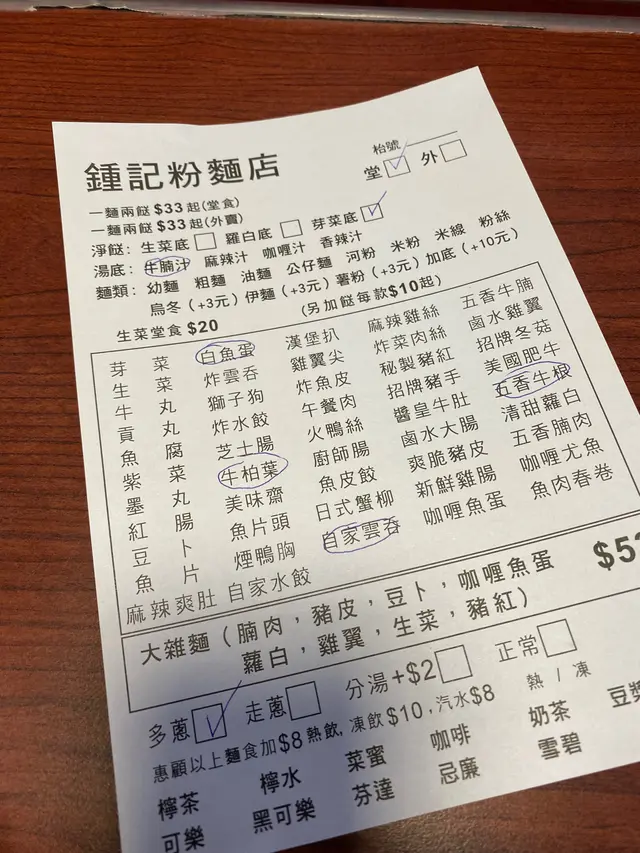 鍾記粉麵店
枱號
堂 外
一麵兩餸 $33 起(堂食)
一麵兩餸 $33 起(外賣)
淨餸: 生菜底 蘿白底 芽菜底
湯底: 牛腩汁 麻辣汁 咖喱汁 香辣汁
麵類: 幼麵 粗麵 油麵 公仔麵 河粉 米粉 米線 粉絲
烏冬 (+3元) 伊麵 (+3元) 薯粉 (+3元) 加底 (+10元)
生菜堂食 $20 (另加餸每款$10起)
芽菜 白魚蛋 漢堡扒 麻辣雞絲 五香牛腩
生菜 炸雲吞 雞翼尖 炸菜肉絲 鹵水雞翼
牛丸 獅子狗 炸魚皮 秘製豬紅 招牌冬菇
貢丸 炸水餃 午餐肉 招牌豬手 美國肥牛
魚腐 芝士腸 火鴨絲 醬皇牛肚 五香牛根
紫菜 牛柏葉 廚師腸 鹵水大腸 清甜蘿白
墨丸 美味齋 魚皮餃 爽脆豬皮 五香腩肉
紅腸 魚片頭 日式蟹柳 新鮮雞腸 咖喱尤魚
豆卜 煙鴨胸 自家雲吞 咖喱魚蛋 魚肉春卷
魚片 自家水餃
麻辣爽肚
大雜麵 (腩肉,豬皮,豆卜,咖喱魚蛋
蘿白,雞翼,生菜,豬紅)
多蔥 走蔥 分湯+$2 正常
惠顧以上麵食加$8熱飲,凍飲$10,汽水$8 熱 / 凍
檸茶 檸水 菜蜜 咖啡 奶茶 豆漿
可樂 黑可樂 芬達 忌廉 雪碧